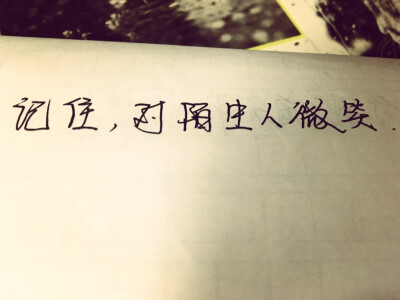 记住,对陌生人微笑.